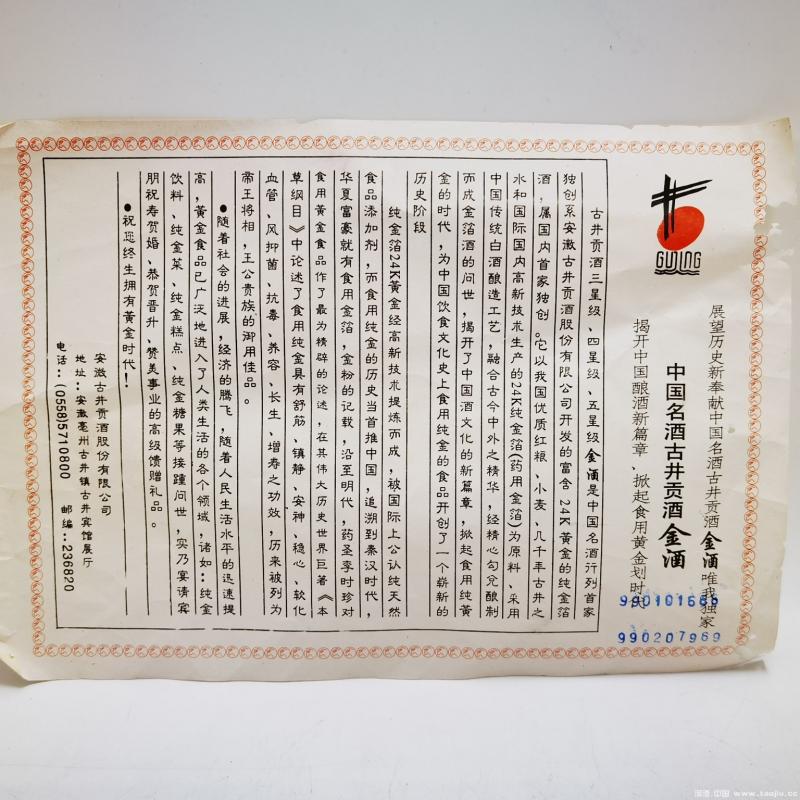 GUJING
展望历史新奉献中国名酒古井贡酒金酒唯我独家
中国名酒古井贡酒金酒
揭开中国酿酒新篇章、掀起食用黄金划时代
990101568
990207969
古井贡酒三星级、四星级、五星级金酒是中国名酒行列首家
独创系安徽古井贡酒股份有限公司开发的富含24K黄金的纯金箔
酒,属国内首家独创。它以我国优质红粮、小麦、几千年古井之
水和国际国内高新技术生产的24K纯金箔(药用金箔)为原料、采用
中国传统白酒酿造工艺,融合古今中外之精华,经精心勾兑酿制
而成金箔酒的问世,揭开了中国酒文化的新篇章,掀起食用纯黄
金的时代,为中国饮食文化史上食用纯金的食品开创了一个崭新的
历史阶段
纯金箔24K黄金经高新技术提炼而成,被国际上公认纯天然
食品添加剂,而食用纯金的历史当首推中国,追溯到秦汉时代,
华夏富豪就有食用金箔,金粉的记载,沿至明代,药圣李时珍对
食用黄金食品作了最为精辟的论述,在其伟大历史世界巨著《本
草纲目》中论述了食用纯金具有舒筋、镇静、安神、稳心、软化
血管、风抑菌、抗毒、养容、长生、增寿之功效,历来被列为
帝王将相,王公贵族的御用佳品。
●随着社会的进展,经济的腾飞,随着人民生活水平的迅速提
高,黄金食品已广泛地进入了人类生活的各个领域,诸如:纯金
饮料、纯金菜、纯金糕点、纯金糖果等接踵问世,实乃宴请宾
朋祝寿贺婚、恭贺晋升、赞美事业的高级馈赠礼品。
●祝您终生拥有黄金时代!
安徽古井贡酒股份有限公司
地址:安徽亳州古井镇古井宾馆展厅
电话:(0558)5710800 邮编:236820
www.taojiu.cc